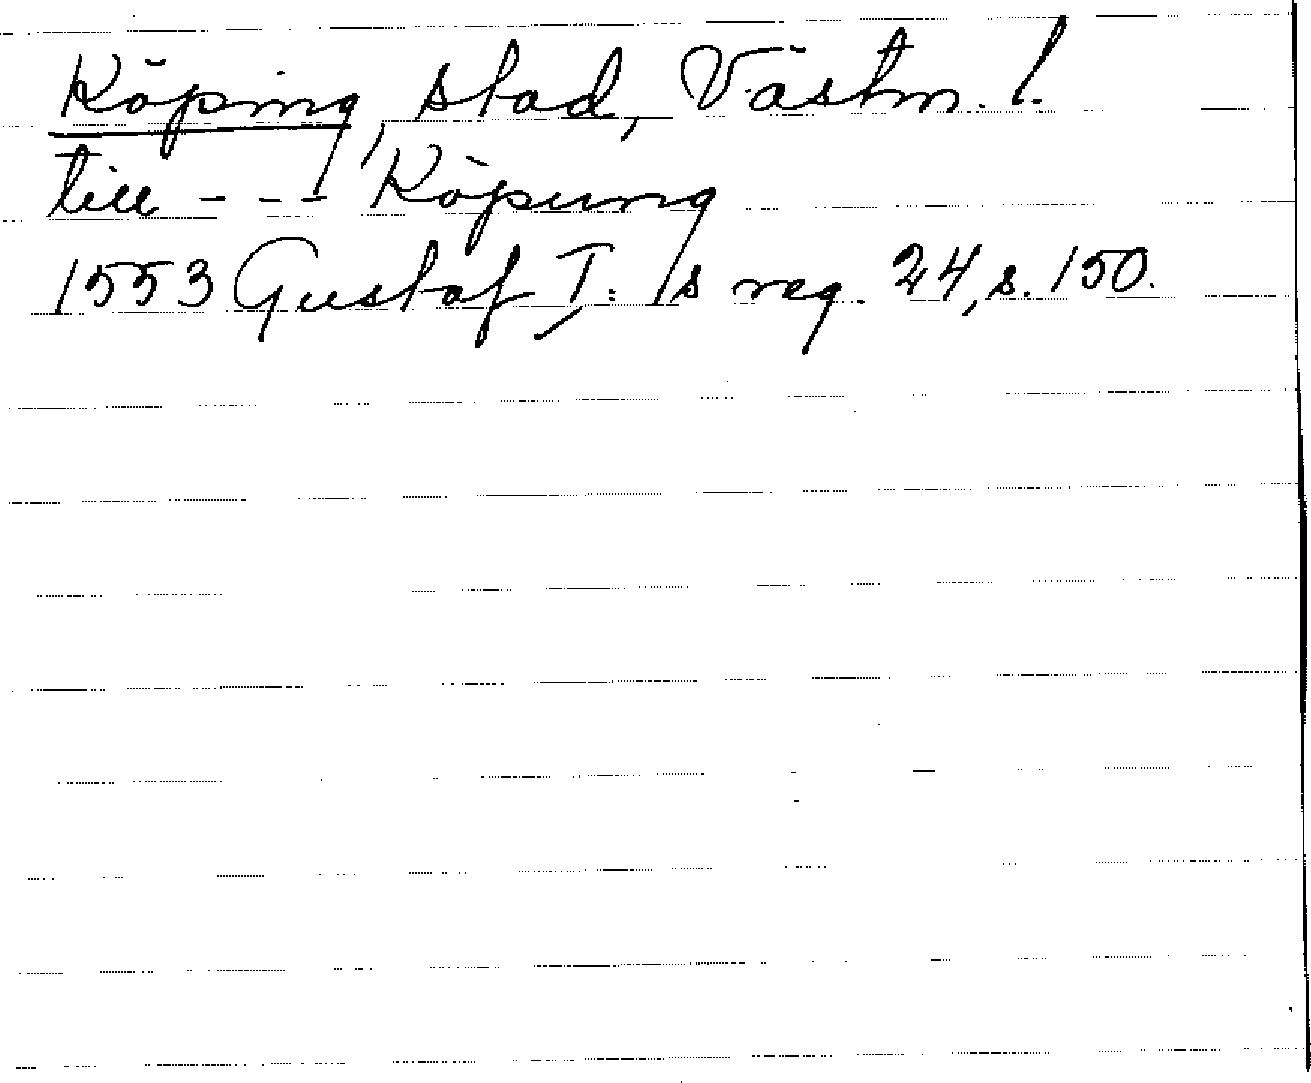 Köping, stad, Västm. l.
till - - - Köpung
1553 Gustaf I:s reg. 24, s. 150.